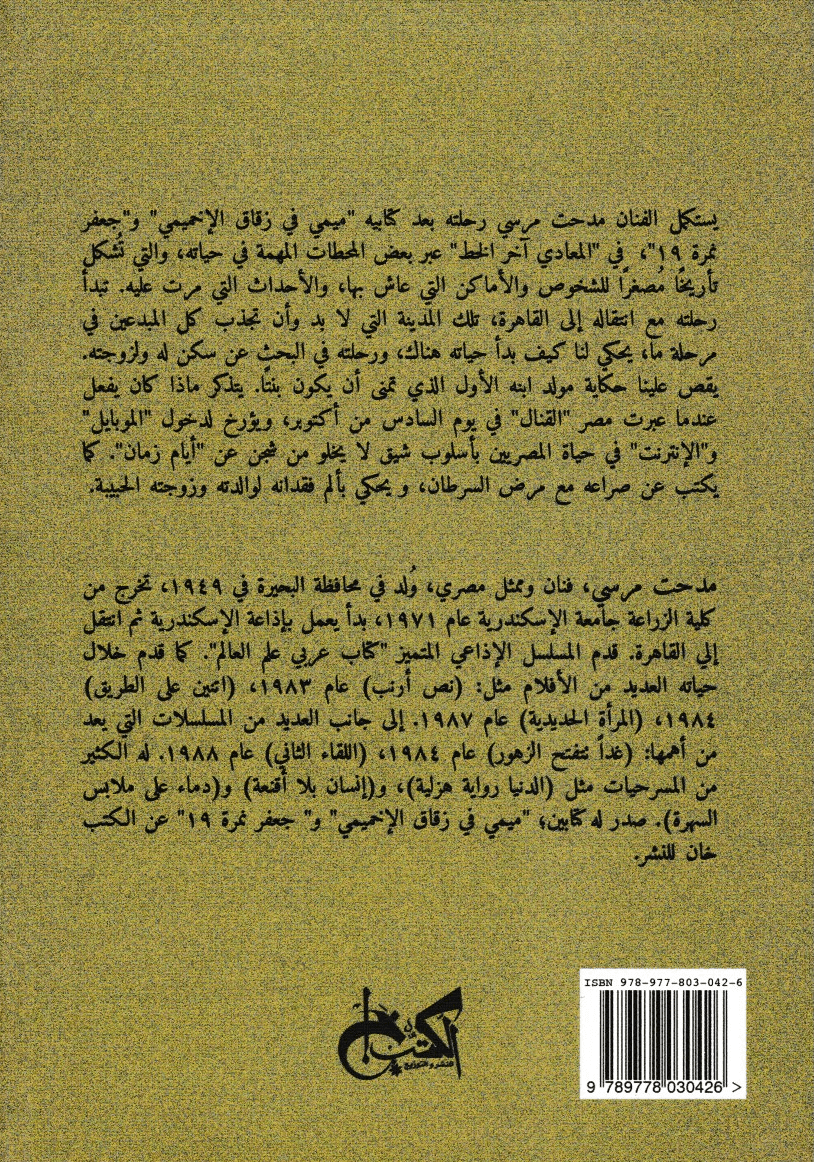 يستكمل الفنان مدحت مرسي رحلته بعد كتابيه "ميمي في زقاق الإخميمي" و"جعفر
نمرة ١٩"، في "المعادي آخر الخط" عبر بعض المحطات المهمة في حياته، والتي تُشكل
تأريخًا مُصغرًا للشخوص والأماكن التي عاش بها، والأحداث التي مرت عليه. تبدأ
رحلته مع انتقاله إلى القاهرة، تلك المدينة التي لا بد وأن تجذب كل المبدعين في
مرحلة ما، يحكي لنا كيف بدأ حياته هناك، ورحلته في البحث عن سكن له ولزوجته.
يقص علينا حكاية مولد ابنه الأول الذي تمنى أن يكون بنتًا. يتذكر ماذا كان يفعل
عندما عبرت مصر "القنال" في يوم السادس من أكتوبر، ويؤرخ لدخول "الموبايل"
و"الإنترنت" في حياة المصريين بأسلوب شيق لا يخلو من شجن عن "أيام زمان". كما
يكتب عن صراعه مع مرض السرطان، و يحكي بألم فقدانه لوالدته وزوجته الحبيبة.
مدحت مرسي، فنان وممثل مصري، وُلد في محافظة البحيرة في ١٩٤٩، تخرج من
كلية الزراعة جامعة الإسكندرية عام ١٩٧١، بدأ يعمل بإذاعة الإسكندرية ثم انتقل
إلي القاهرة. قدم المسلسل الإذاعي المتميز "كتاب عربي علم العالم". كما قدم خلال
حياته العديد من الأفلام مثل: (نص أرنب) عام ١٩٨٣، (اتنين على الطريق)
١٩٨٤، (المرأة الحديدية) عام ١٩٨٧. إلى جانب العديد من المسلسلات التي يعد
من أهمها: (غداً تتفتح الزهور) عام ١٩٨٤، (اللقاء الثاني) عام ١٩٨٨. له الكثير
من المسرحيات مثل (الدنيا رواية هزلية)، و(إنسان بلا أقنعة) و(دماء على ملابس
السهرة). صدر له كتابين؛ "ميمي في زقاق الإخميمي" و" جعفر نمرة ١٩" عن الكتب
خان للنشر.
الكتب خان
للنشر والتوزيع
ISBN 978-977-803-042-6
9 789778 030426 >